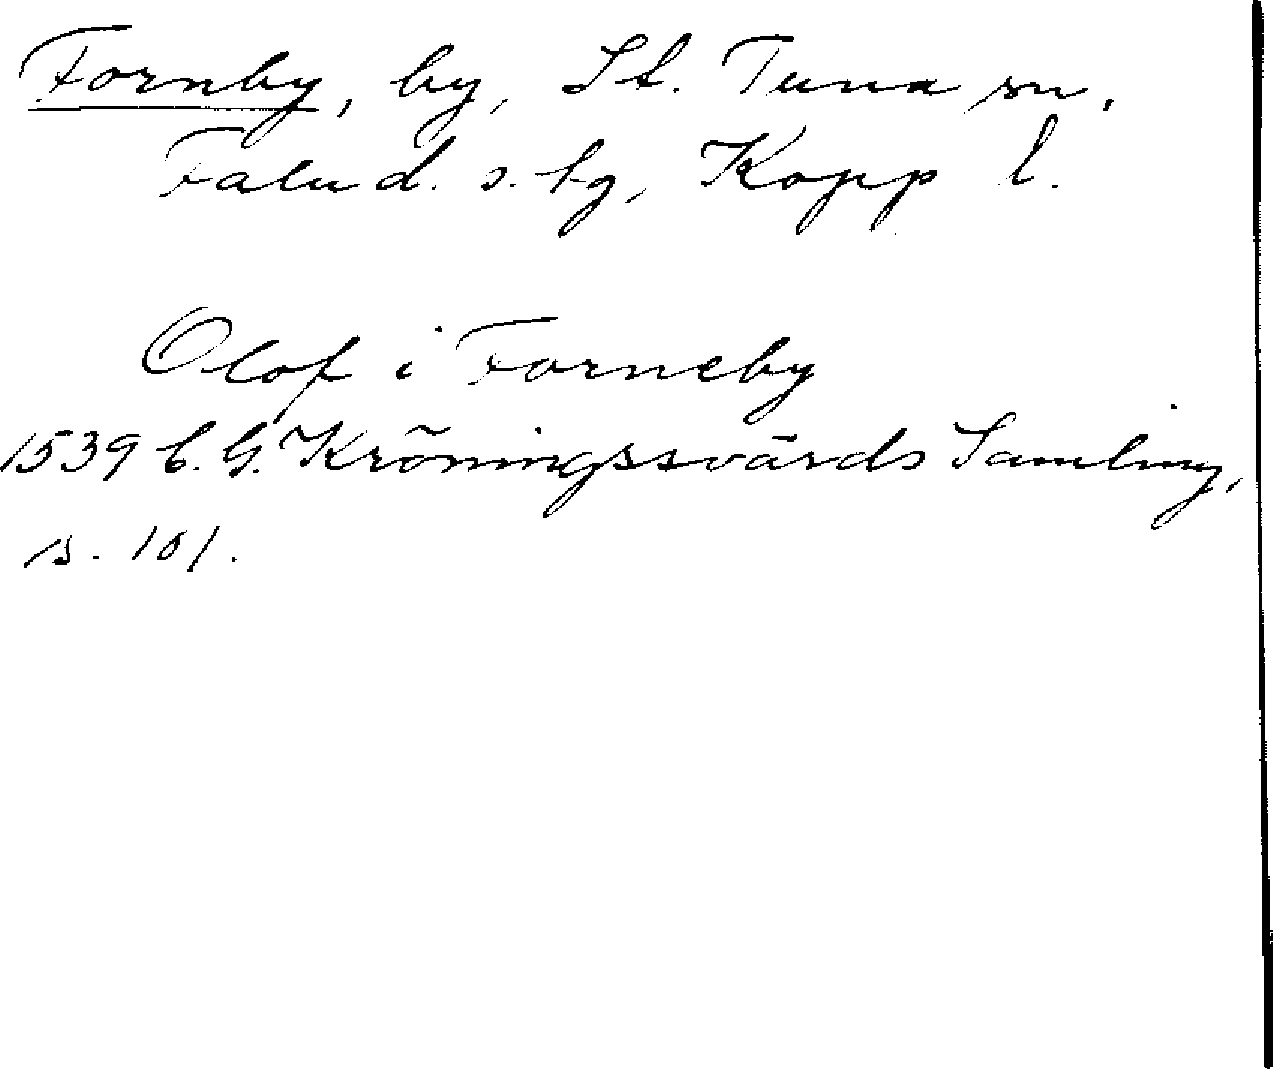 Fornby, by, St. Tuna sn,
Falu d. s. tg, Kopp l.
Olof i Forneby
1539 C. G. Kröningssvärds Samling,
s. 101.